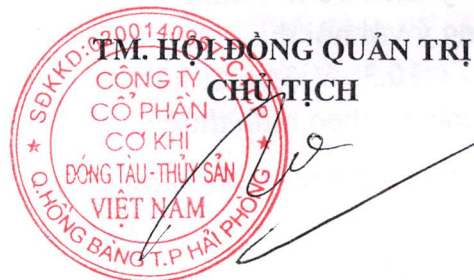 TM. HỘI ĐỒNG QUẢN TRỊ
CHỦ TỊCH
CÔNG TY
CỔ PHẦN
CƠ KHÍ
ĐÓNG TÀU - THỦY SẢN
VIỆT NAM
Q.HỒNG BÀNG T.P HẢI PHÒNG